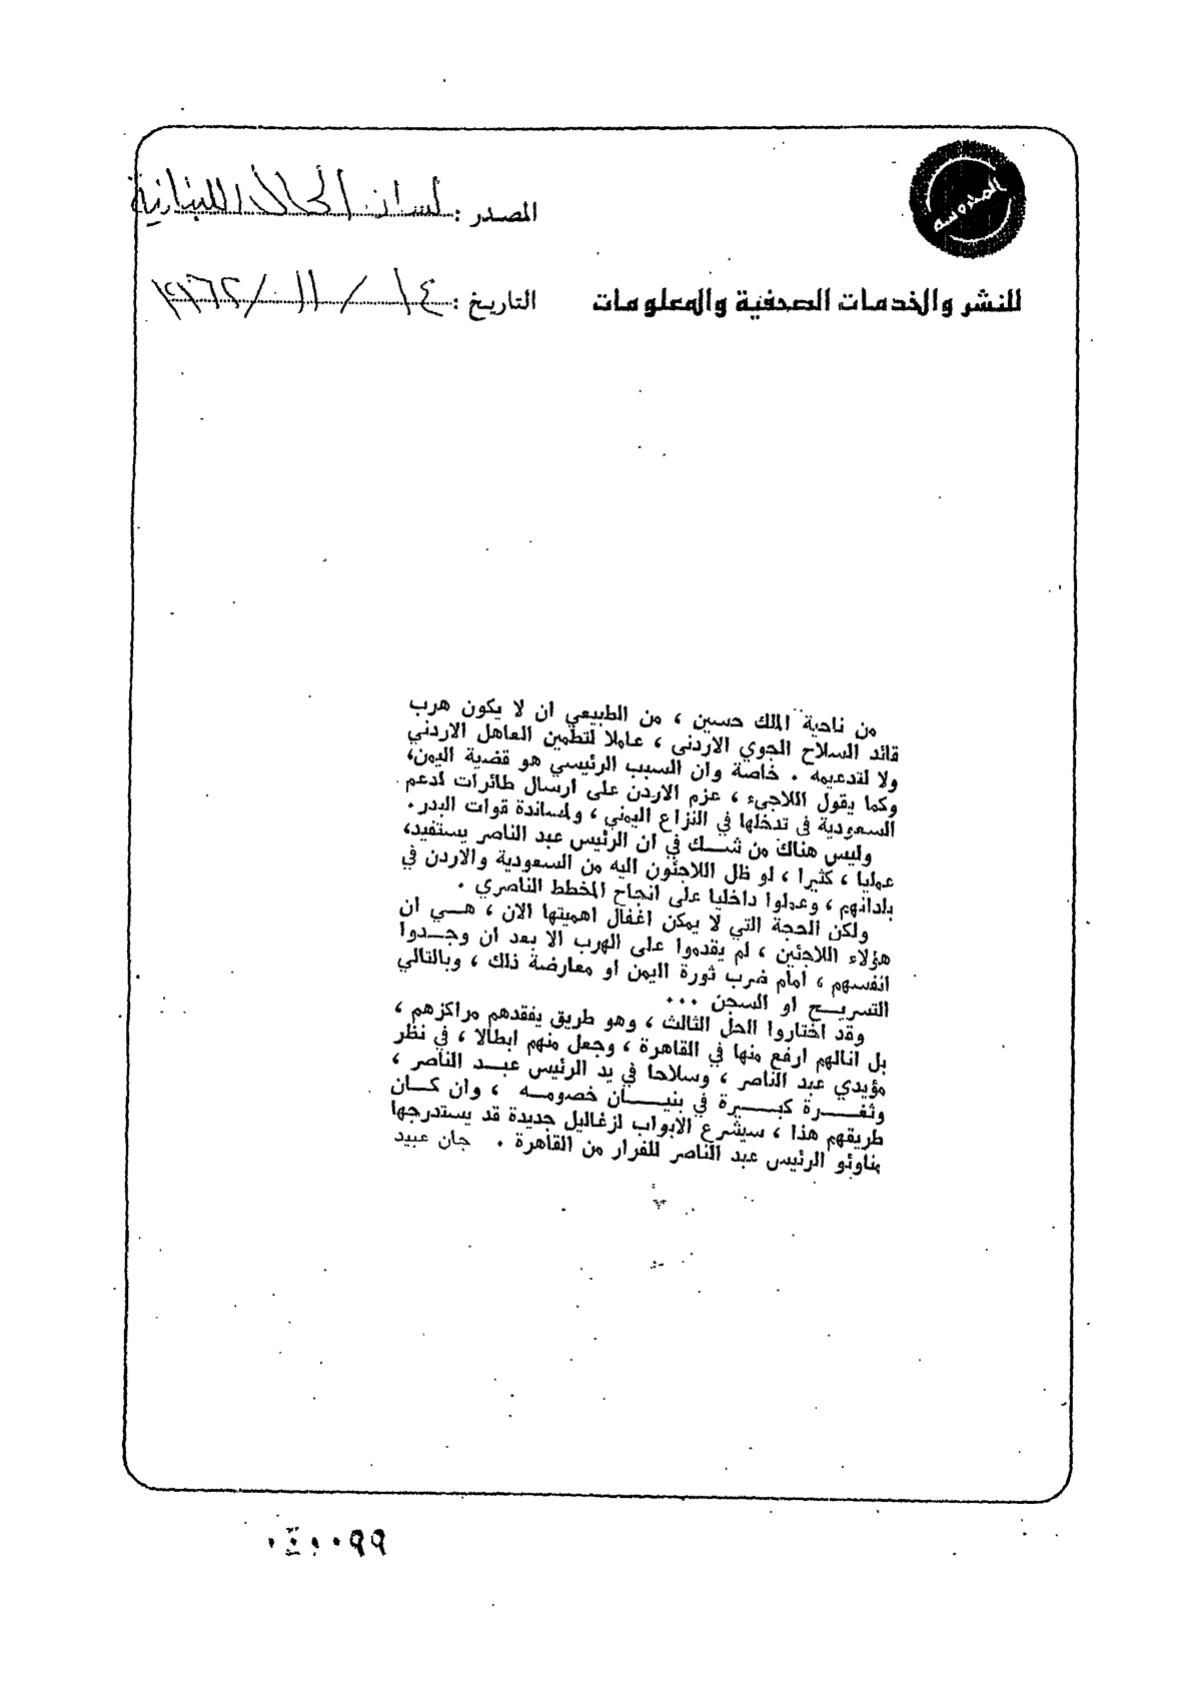 المحروسه
المصدر : لسان الحال اللبنانية
للنشر والخدمات الصحفية والمعلومات
التاريخ : ١٤ / ١١ / ١٩٦٢
من ناحية الملك حسين ، من الطبيعي ان لا يكون هرب
قائد السلاح الجوي الاردني ، عاملا لتطمين العاهل الاردني
ولا لتدعيمه . خاصة وان السبب الرئيسي هو قضية اليمن،
وكما يقول اللاجيء ، عزم الاردن على ارسال طائرات لدعم
السعودية في تدخلها في النزاع اليمني ، ولمساندة قوات البدر.
وليس هناك من شــك في ان الرئيس عبد الناصر يستفيد،
عمليا ، كثيرا ، لو ظل اللاجئون اليه من السعودية والاردن في
بلدانهم ، وعملوا داخليا على انجاح المخطط الناصري .
ولكن الحجة التي لا يمكن اغفال اهميتها الان ، هــي ان
هؤلاء اللاجئين ، لم يقدموا على الهرب الا بعد ان وجــدوا
انفسهم ، امام ضرب ثورة اليمن او معارضة ذلك ، وبالتالي
التسريــح او السجن ...
وقد اختاروا الحل الثالث ، وهو طريق يفقدهم مراكزهم ،
بل انالهم ارفع منها في القاهرة ، وجعل منهم ابطالا ، في نظر
مؤيدي عبد الناصر ، وسلاحا في يد الرئيس عبــد الناصر ،
وثغــــرة كبــــيرة في بنيــــان خصومــه ، وان كــان
طريقهم هذا ، سيشرع الابواب لزغاليل جديدة قد يستدرجها
مناوئو الرئيس عبد الناصر للفرار من القاهرة . جان عبيد